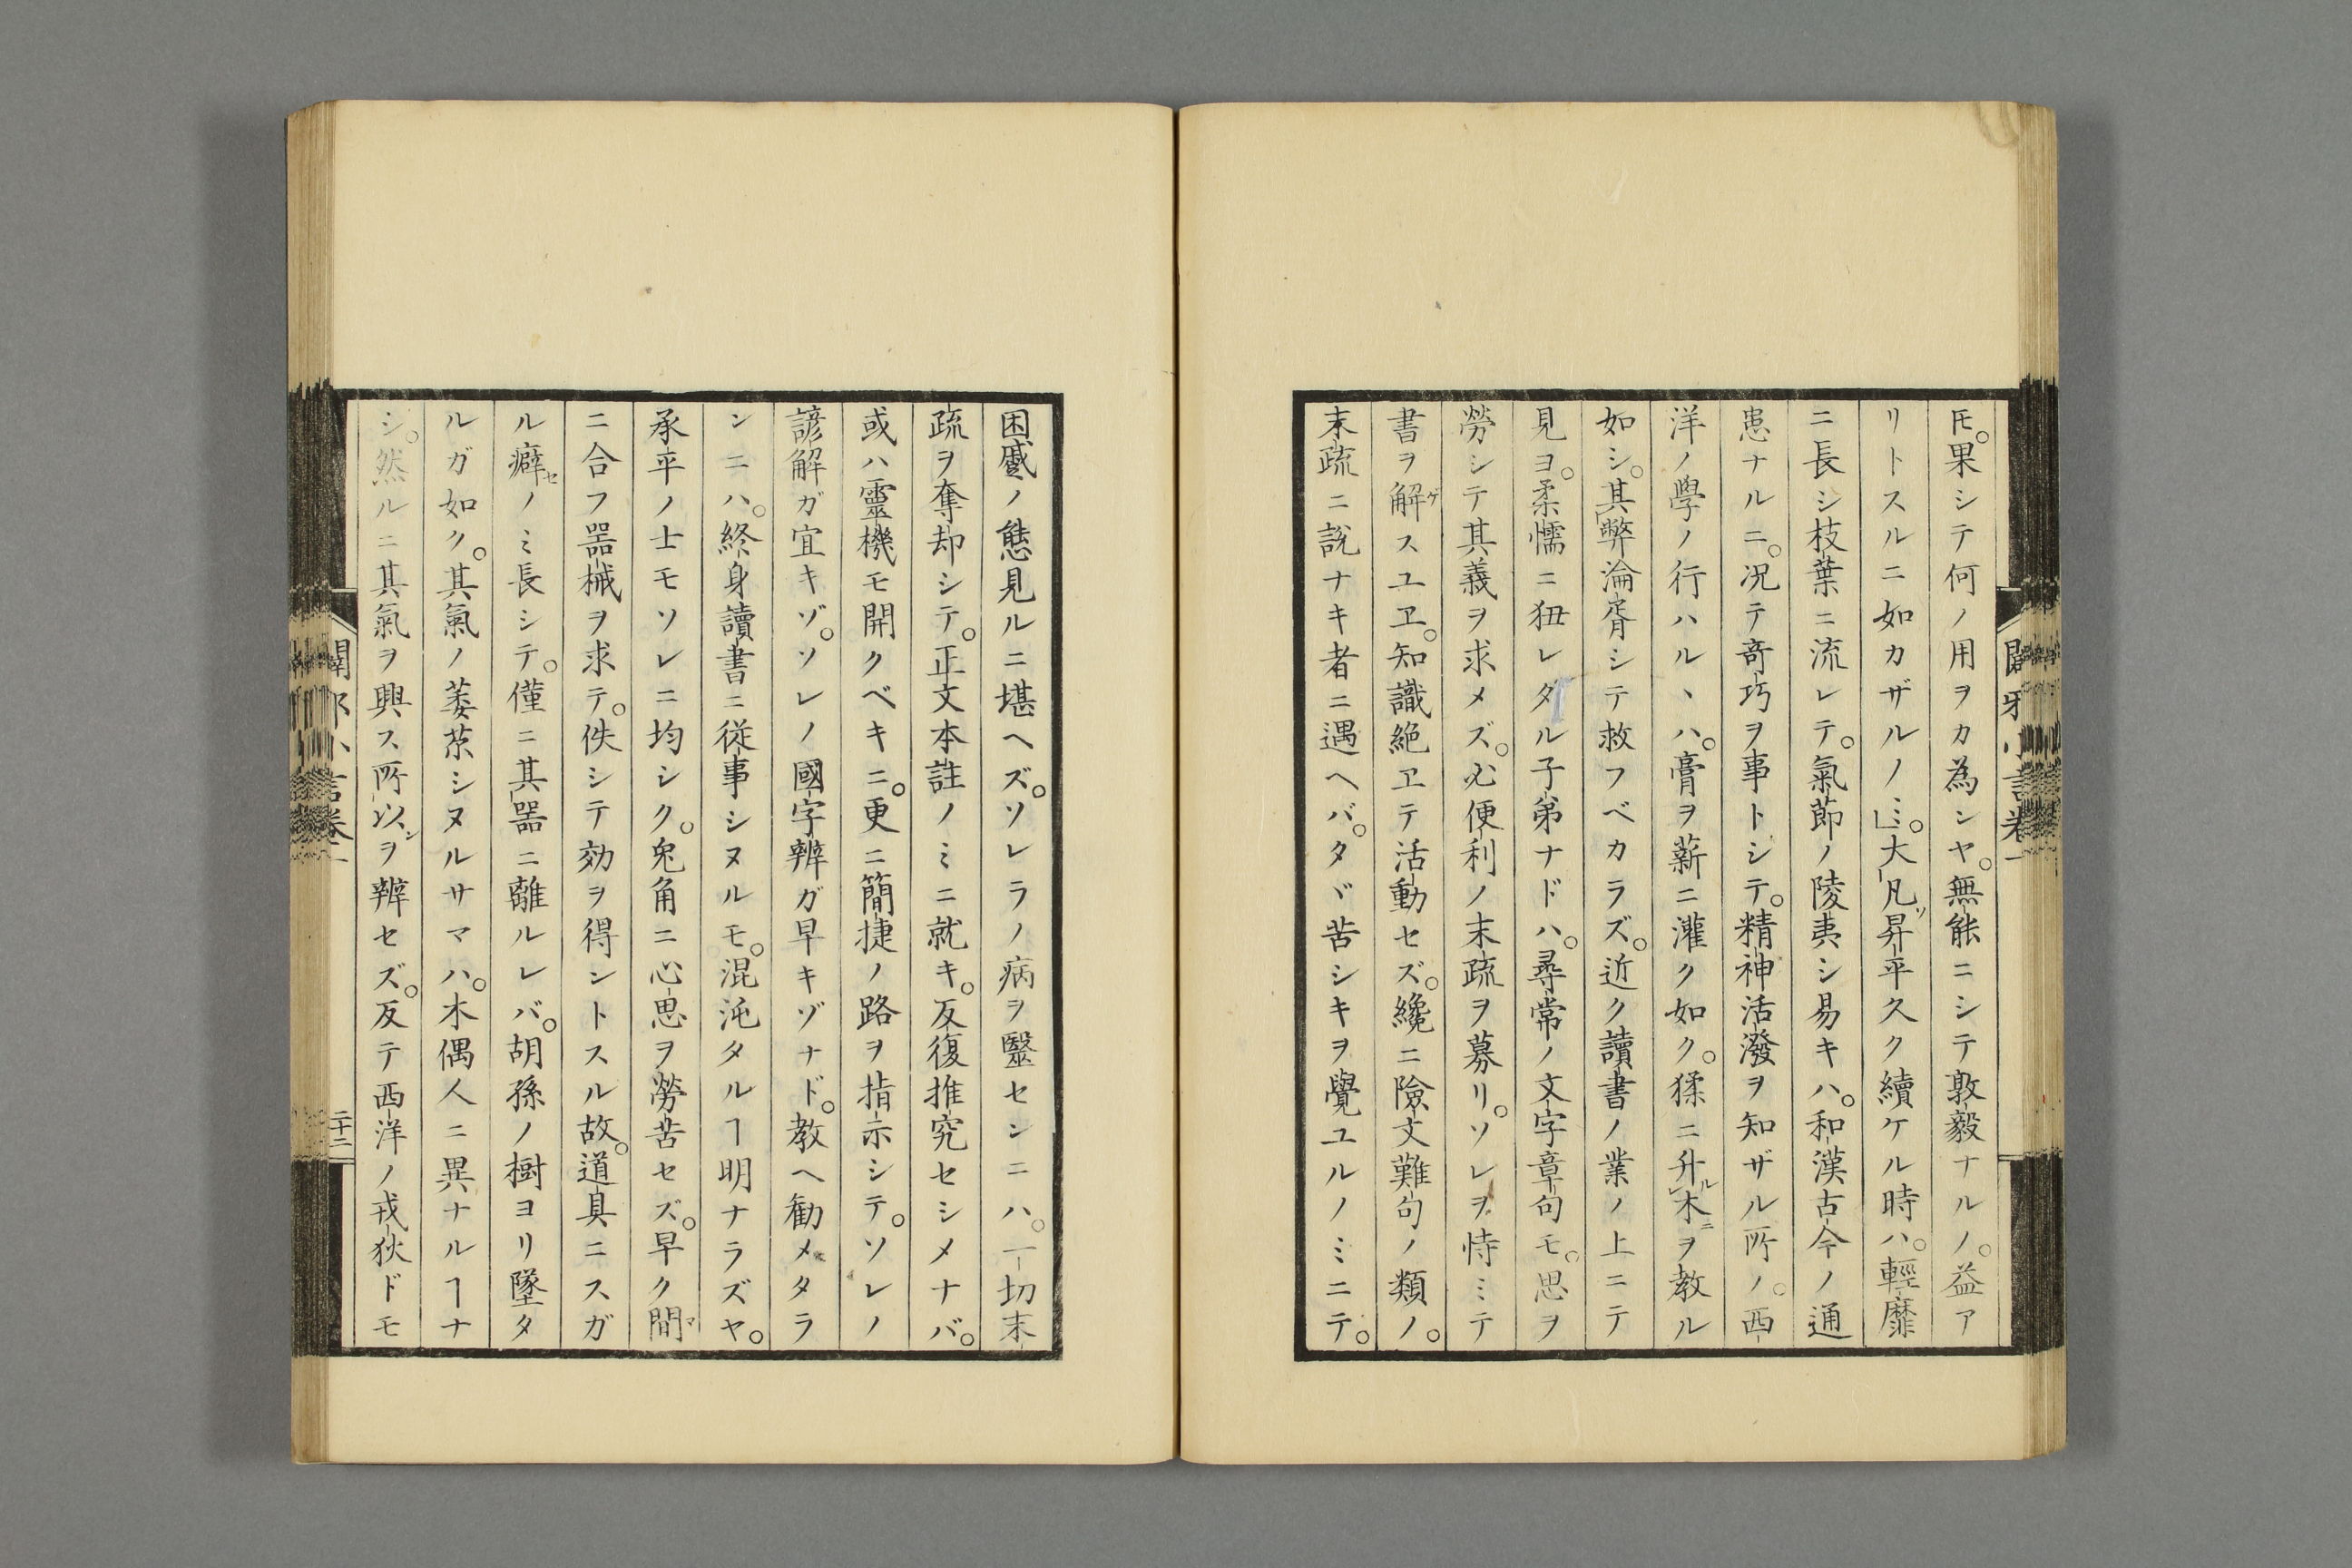 𪜈。果シテ何ノ用ヲカ為シヤ。無能ニシテ敦毅ナルノ。益ア
リトスルニ如カザルノミ。」大凡ソ昇平久ク續ケル時ハ。輕靡
ニ長シ枝葉ニ流レテ。氣節ノ陵夷シ易キハ。和漢古今ノ通
患ナルニ。况テ奇巧ヲ事トシテ。精神活潑ヲ知ザル所ノ。西
洋ノ學ノ行ハルヽハ。膏ヲ薪ニ灌ク如ク。猱ニ升ルレ木ニヲ教ル
如シ。其弊淪胥シテ救フベカラズ。近ク讀書ノ業ノ上ニテ
見ヨ。柔懦ニ狃レタル子弟ナドハ。尋常ノ文字章句モ。思ヲ
勞シテ其義ヲ求メズ。必便利ノ末疏ヲ募リ。ソレヲ恃ミテ
書ヲ解ゲスユヱ。知識絶ヱテ活動セズ。纔ニ險文難句ノ類ノ。
末疏ニ説ナキ者ニ遇ヘバ。タヾ苦シキヲ覺ユルノミニテ。
闢邪小言卷一
困蹙ノ態見ルニ堪ヘズ。ソレラノ病ヲ毉センニハ。一切末
疏ヲ奪却シテ。正文本註ノミニ就キ。反復推究セシメナバ。
或ハ靈機モ開クベキニ。更ニ簡捷ノ路ヲ指示シテ。ソレノ
諺解ガ宜キゾ。ソレノ國字辨ガ早キゾナド。教ヘ勸メタラ
ンニハ。終身讀書ニ従事シヌルモ。混沌タルヿ明ナラズヤ。
承平ノ士モソレニ均シク。兔角ニ心思ヲ勞苦セズ。早ク間マ
ニ合フ噐械ヲ求テ。佚シテ効ヲ得ントスル故。道具ニスガ
ル癖セノミ長シテ。僅ニ其噐ニ離ルレバ。胡孫ノ樹ヨリ墜タ
ルガ如ク。其氣ノ萎苶シヌルサマハ。木偶人ニ異ナルヿナ
シ。然ルニ其氣ヲ興ス所以シヲ辨セズ。反テ西洋ノ戎狄ドモ
闢邪小言卷一
二十二